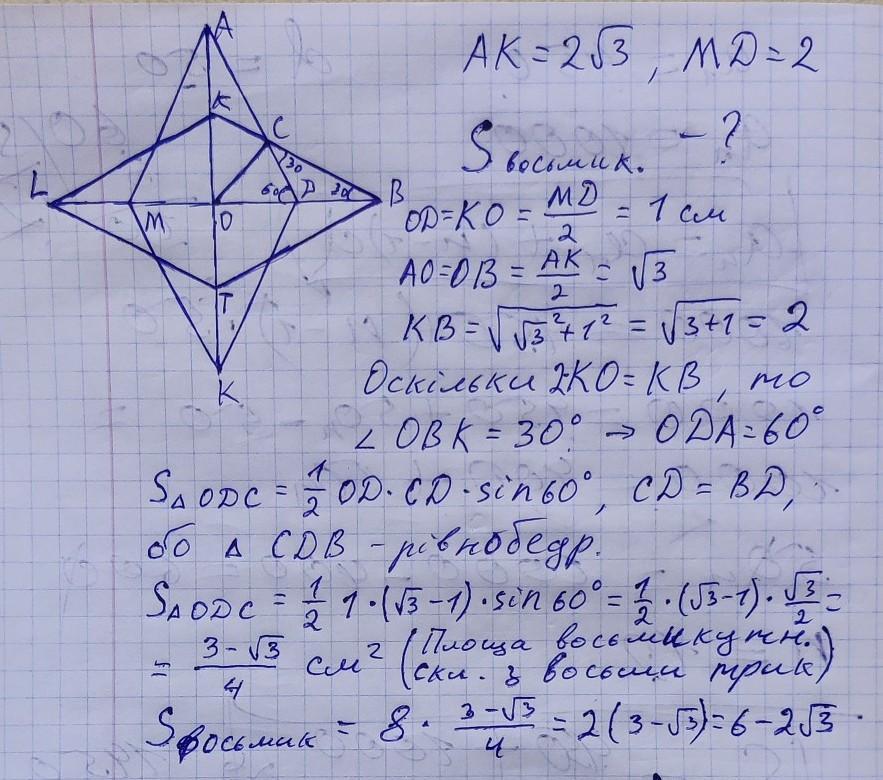 A
K
C
30
L
60°
D
30
B
M
O
T
K
AK = 2√3 , MD = 2
S восьмик. - ?
OD=KO = MD/2 = 1 см
AO=OB = AK/2 = √3
KB = √(√3² + 1²) = √(3+1) = 2
Оскільки 2KO = KB , то
∠ OBK = 30° → ODA = 60°
S△ODC = 1/2 OD · CD · sin 60° , CD = BD,
бо △ CDB - рівнобедр.
S△ODC = 1/2 1 · (√3 - 1) · sin 60° = 1/2 · (√3 - 1) · √3/2 =
= (3 - √3)/4 см² (Площа восьмикутн.
скл. з восьми трик)
Sвосьмик = 8 · (3 - √3)/4 = 2(3 - √3) = 6 - 2√3